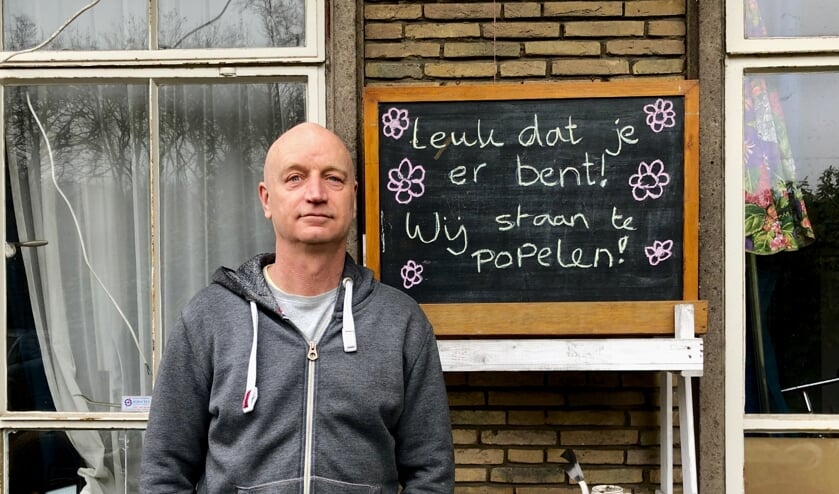 Leuk dat je
er bent!
Wij staan te
popelen!